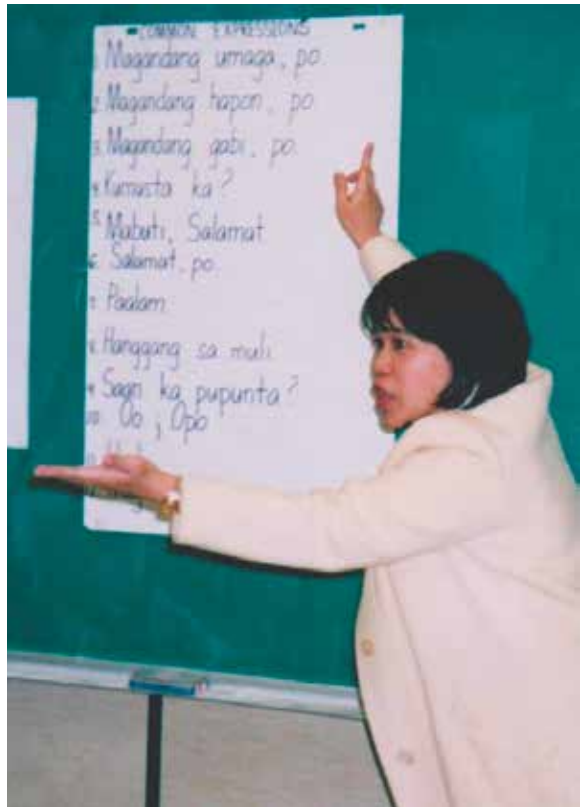 COMMON EXPRESSIONS
Magandang umaga, po.
2. Magandang hapon, po
3. Magandang gabi, po.
4. Kumusta ka?
5. Mabuti, Salamat
6. Salamat, po.
7. Paalam
8. Hanggang sa muli
9. Saan ka pupunta?
10. Oo ; Opo